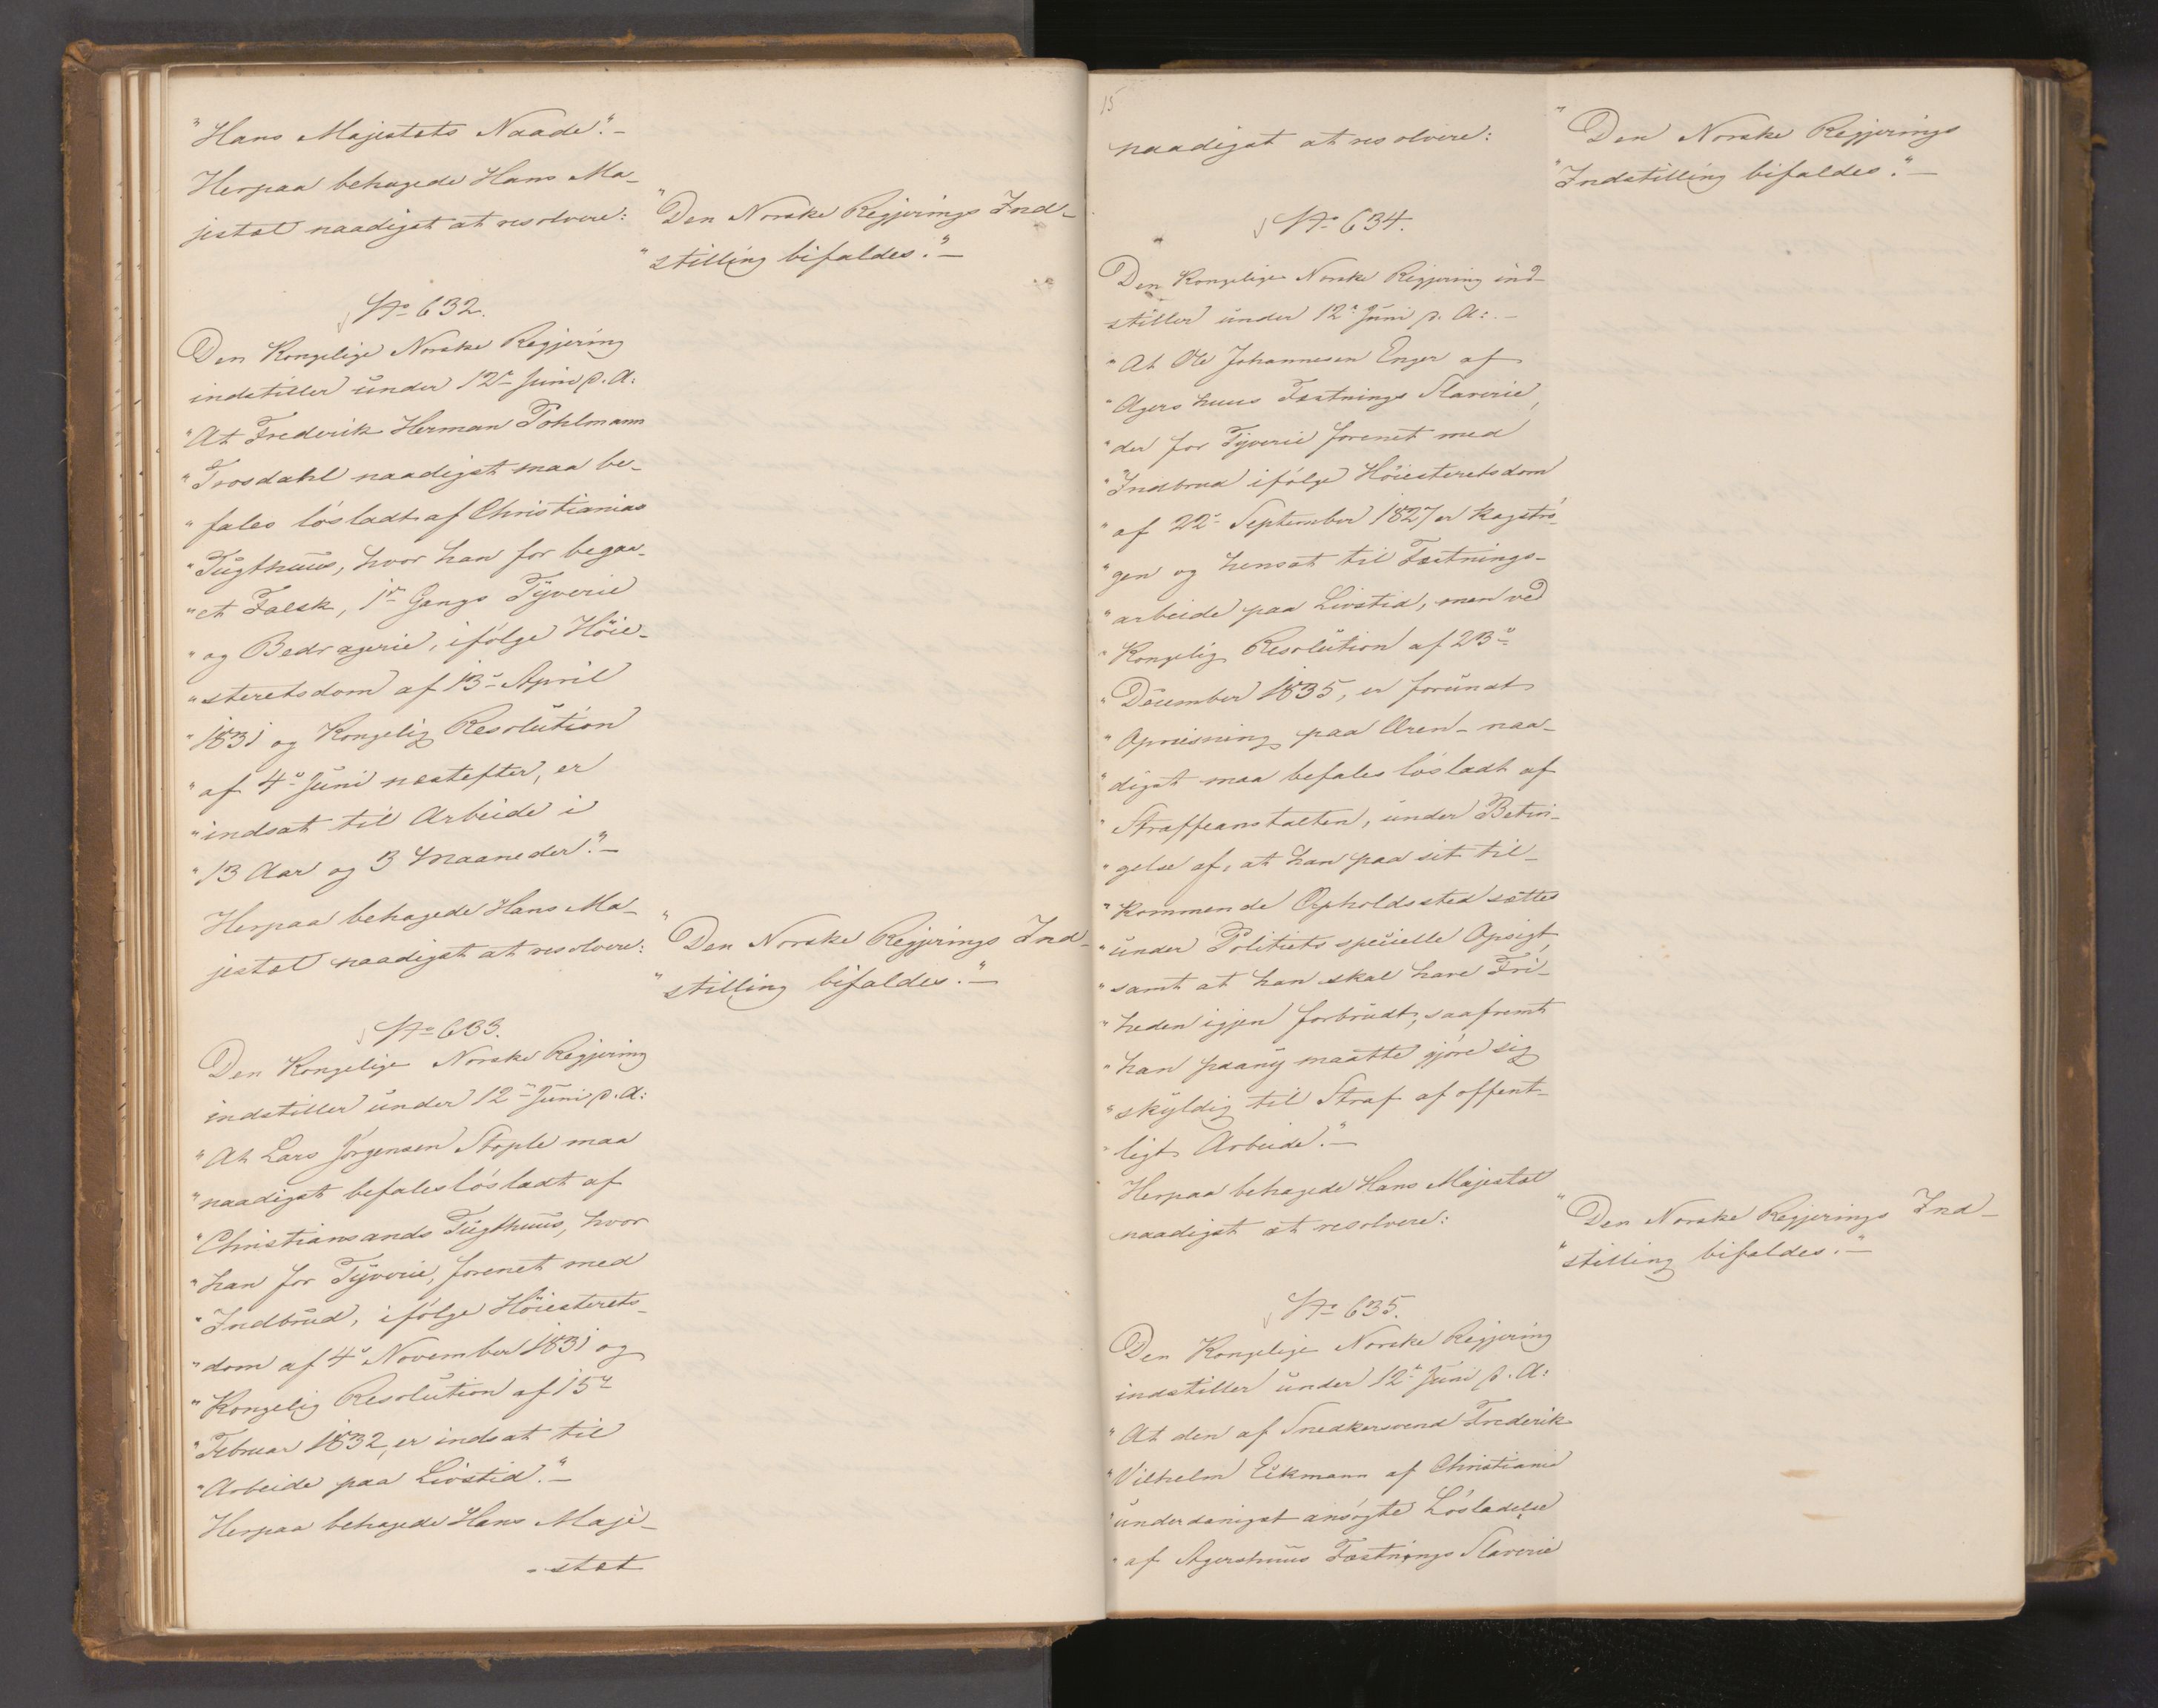 "Hans Majestæts Naade."-
Herpaa behagede Hans Ma-
jestæt naadigst at resolvere:
"Den Norske Regjerings Ind-
"stilling bifaldes."-
No 632.
Den Kongelige Norske Regjering
indstiller under 12te Juni d. A:
"At Frederik Herman Pohlmann
"Trosdahl naadigst maa be-
"fales løsladt af Christianias
"Tugthuus, hvor han for begaa-
"et Falsk, 1ste Gangs Tyverie
"og Bedragerie, ifølge Höie-
"steretsdom af 13de April
"1831 og Kongelig Resolution
"af 4de Juni næstefter, er
"indsat til Arbeide i
"13 Aar og 3 Maaneder."-
Herpaa behagede Hans Ma-
jestæt naadigst at resolvere:
"Den Norske Regjerings Ind-
"stilling bifaldes."-
No 633.
Den Kongelige Norske Regjering
indstiller under 12te Juni d. A:
"At Lars Jørgensen Stople maa
"naadigst befales løsladt af
"Christiansands Tugthuus, hvor
"han for Tyverie, forenet med
"Indbrud, ifølge Höiesterets-
"dom af 4de November 1831 og
"Kongelig Resolution af 15de
"Februar 1832, er indsat til
"Arbeide paa Livstid."-
Herpaa behagede Hans Maje-
-stæt
15
naadigst at resolvere:
"Den Norske Regjerings
"Indstilling bifaldes."-
No 634.
Den Kongelige Norske Regjering ind-
stiller under 12te Juni d. A:-
"At Ole Johannesen Enger af
"Agershuus Fæstnings Slaverie,
"der for Tyverie forenet med
"Indbrud ifølge Höiesteretsdom
"af 22de September 1827 er kagstrø-
"gen og hensat til Fæstnings-
"arbeide paa Livstid, men ved
"Kongelig Resolution af 23de
"December 1835, er forundt
"Opreisning paa Æren- naa-
"digst maa befales løsladt af
"Straffeanstalten, under Betin-
"gelse af, at han paa sit til-
"kommende Opholdssted sættes
"under Politiets specielle Opsigt,
"samt at han skal have Fri-
"heden igjen forbrudt, saafremt
"han paany maatte gjøre sig
"skyldig til Straf af offent-
"ligt Arbeide."-
Herpaa behagede Hans Majestæt
naadigst at resolvere:
"Den Norske Regjerings Ind-
"stilling bifaldes."-
No 635.
Den Kongelige Norske Regjering
indstiller under 12te Juni d. A:
"At den af Snedkersvend Frederik
"Vilhelm Eckmann af Christiania
"underdanigst ansøgte Løsladelse
"af Agershuus Fæstnings Slaverie